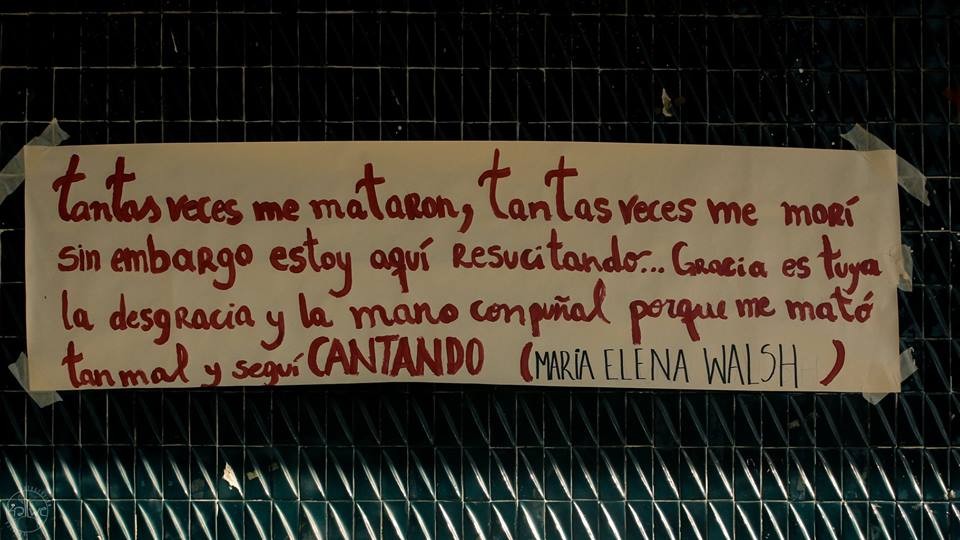 tantas veces me mataron, tantas veces me morí
sin embargo estoy aquí resucitando... Gracia es tuya
la desgracia y la mano con puñal porque me mató
tan mal y seguí CANTANDO (MARÍA ELENA WALSH)